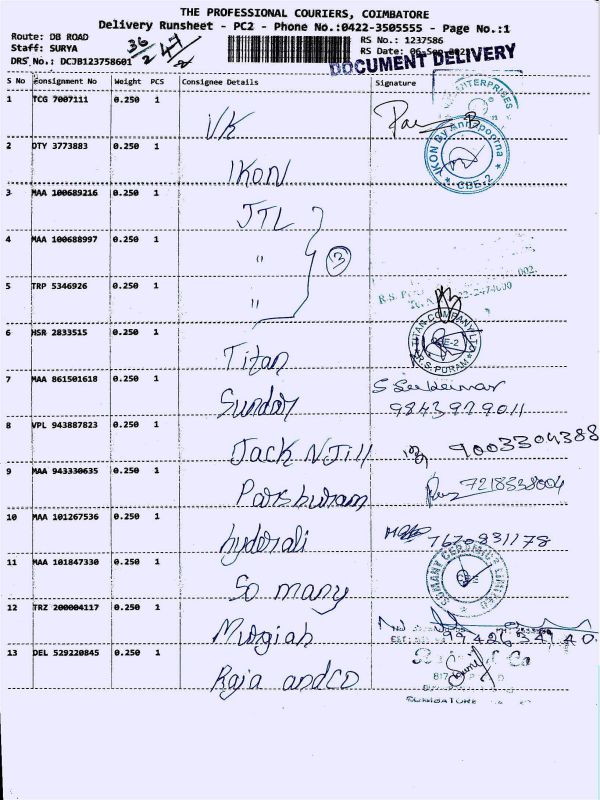 THE PROFESSIONAL COURIERS, COIMBATORE
Delivery Runsheet - PC2 - Phone No.:0422-3505555 - Page No.:1
Route: DB ROAD
RS No.: 1237586
Staff: SURYA
36/2 47/2
RS Date: 06-Sep-2021
DRS No.: DCJB123758601
DOCUMENT DELIVERY
S No Consignment No Weight PCS Consignee Details Signature
1 TCG 7007111 0.250 1 VK
ENTERPRISES
2 DTY 3773883 0.250 1 IKON
IKON By Annapoorna
CBE-2
3 MAA 100689216 0.250 1 JTL
4 MAA 100688997 0.250 1 "
3
5 TRP 5346926 0.250 1 "
002.
6 HSR 2833515 0.250 1 Titan
TITAN COMPANY LTD
CBE-2
R.S. PURAM
7 MAA 861501618 0.250 1 Sundar
9843979011
8 VPL 943887823 0.250 1 Jack N Jill 9003304388
9 MAA 943330635 0.250 1 Parsburam 7218538004
10 MAA 101267536 0.250 1 hyderali 7670831178
11 MAA 101847330 0.250 1 So many
SOMANY CERAMICS LIMITED
CBE
12 TRZ 200004117 0.250 1 Murgiah
13 DEL 529220845 0.250 1 Raja and CO
COIMBATORE